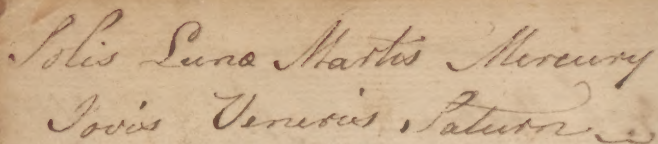 Solis Lunæ Martis Mercury
Jovis Veneris Saturn